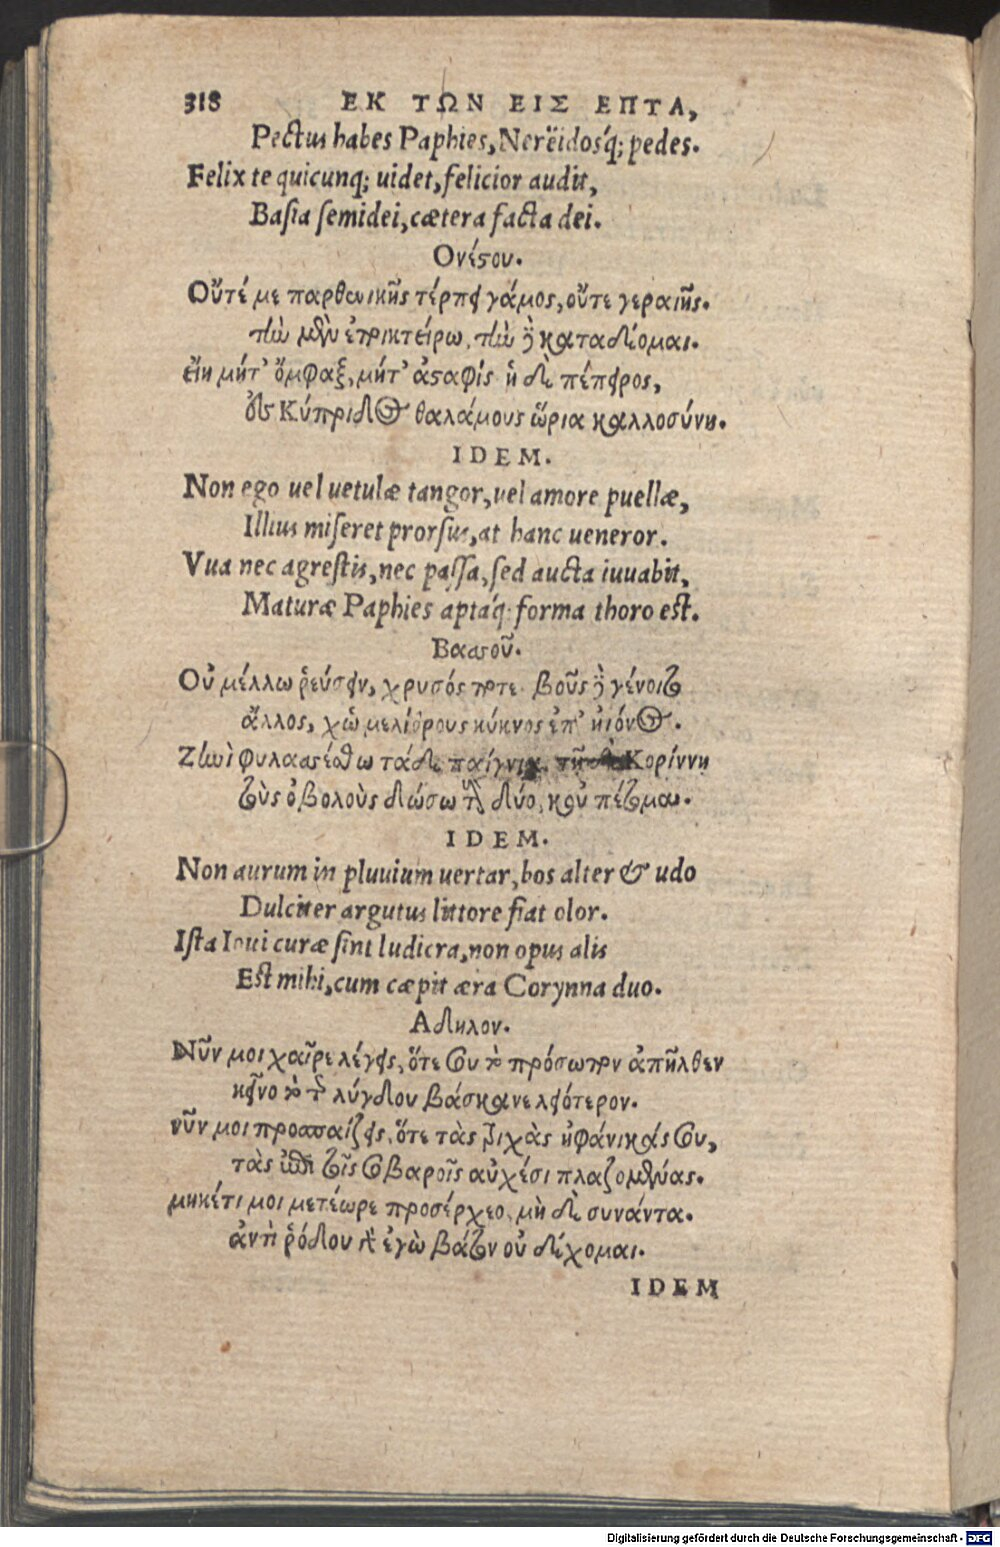 318 ΕΚ ΤΩΝ ΕΙΣ ΕΠΤΑ,
Pectus habes Paphies, Nereïdosq́; pedes.
Felix te quicunq; uidet, felicior audit,
Basia semidei, cætera facta dei.
Ονέστου.
Οὔτέ με παρθενικῆς τέρπει γάμος, οὔτε γεραιῆς.
τὴν μὲν ἐποικτείρω, τὴν ἢ καταδέομαι.
εἴη μήτ᾽ ὄμφαξ, μήτ᾽ ἀσταφίς ἡ δὲ πέπειρος,
ἐς Κύπριδος θαλάμους ὥρια καλλοσύνη.
IDEM.
Non ego uel uetulæ tangor, uel amore puellæ,
Illius miseret prorsus, at hanc ueneror.
Vua nec agrestis, nec passa, sed aucta iuuabit,
Maturæ Paphies aptaq́; forma thoro est.
Βασσοῦ.
Οὐ μέλλω ῥεύσειν, χρυσός ποτε βοῦς ἢ γένοιτο
ἄλλος, χὠ μελίθρους κύκνος ἐπ᾽ ἠιόνος.
Ζηνὶ φυλασσέσθω τάδε παίγνια, τῇ δὲ Κορίννῃ
τοὺς ὀβολοὺς δώσω τοὺς δύο, κοὐ πέτομαι.
IDEM.
Non aurum in pluuium uertar, bos alter & udo
Dulciter argutus littore fiat olor.
Ista Ioui curæ sint ludicra, non opus alis
Est mihi, cum cæpit æra Corynna duo.
Αδηλον.
Νῦν μοι χαῖρε λέγεις, ὅτε σου τὸ πρόσωπον ἀπῆλθεν
κεῖνο τὸ τῆς λύγδου βάσκανε λειότερον.
νῦν μοι προσπαίζεις, ὅτε τὰς τριχὰς ἠφάνικάς σου,
τὰς ἐπὶ τοῖς σοβαροῖς αὐχέσι πλαζομένας.
μηκέτι μοι μετέωρε προσέρχεο, μὴ δὲ συνάντα.
ἀντὶ ῥόδου γὰρ ἐγὼ βάτον οὐ δέχομαι.
IDEM
Digitalisierung gefördert durch die Deutsche Forschungsgemeinschaft - DFG